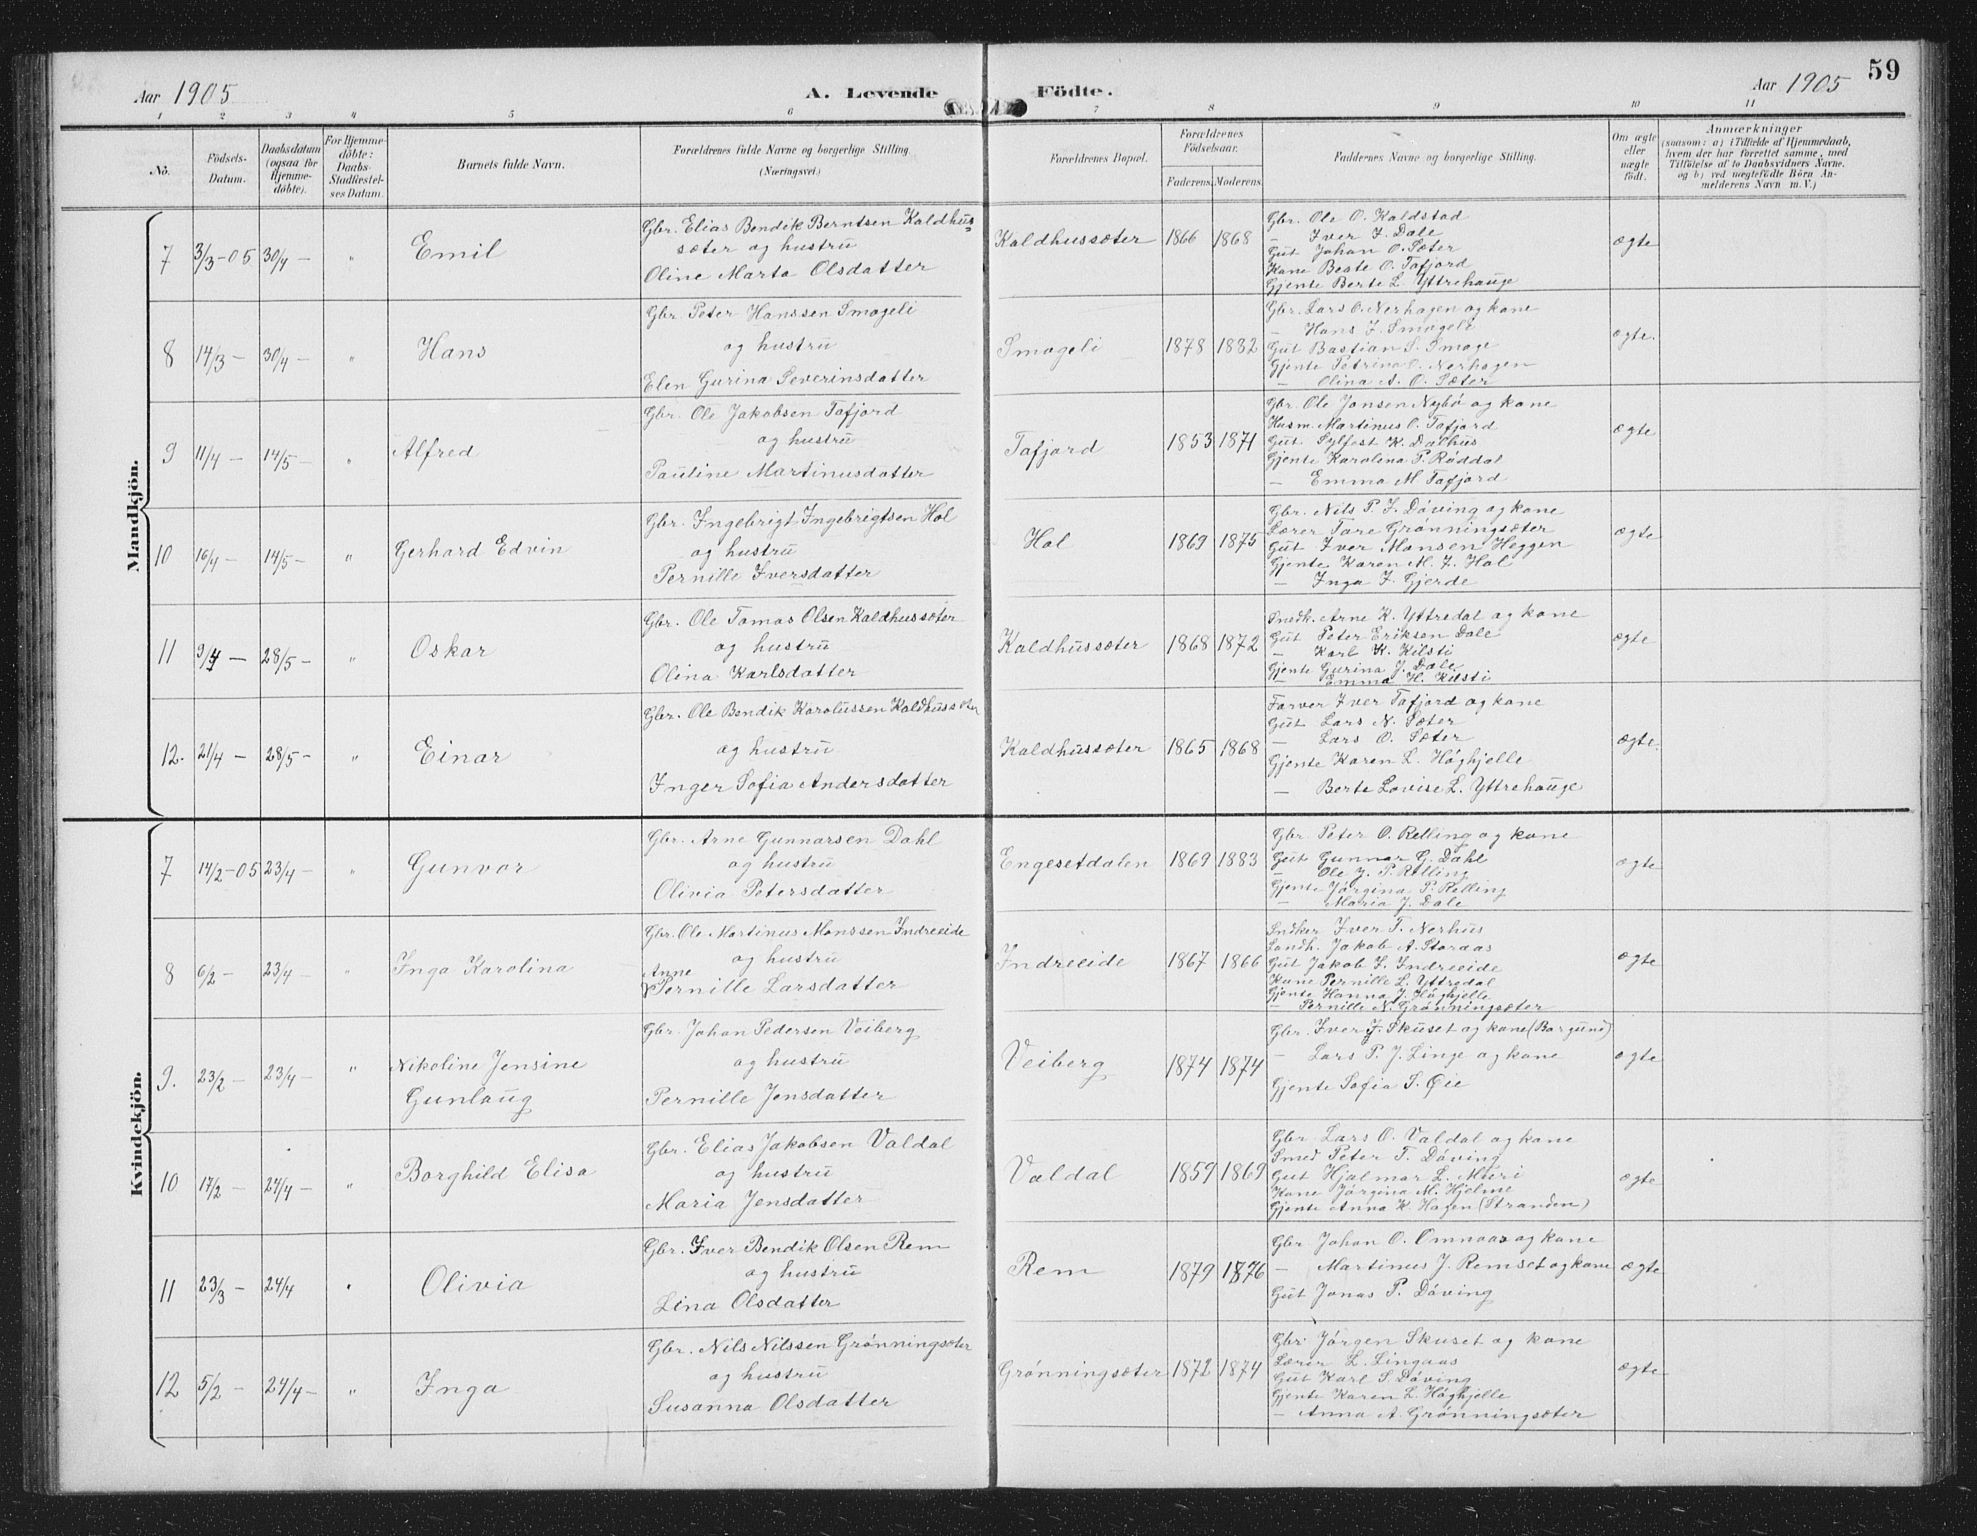 59
Aar 1905
A. Levende Födte.
Aar 1905
1 2 3 4 5 6 7 8 9 10 11
No.
Födsels-Datum.
Daabsdatum (ogsaa for Hjemme-döbte).
For Hjemme-döbte: Daabs-Stadfæstel-ses Datum.
Barnets fulde Navn.
Forældrenes fulde Navne og borgerlige Stilling.
(Næringsvei.)
Forældrenes Bopæl.
Forældrenes Födselsaar.
Faderens. Moderens.
Faddernes Navne og borgerlige Stilling.
Om ægte eller uægte födt.
Anmærkninger
(saasom: a) i Tilfælde af Hjemmedaab,
hvem der har forrettet samme, med
Tilföielse af to Daabsvidners Navne,
og b) ved uægtefödte Börn An-
melderens Navn m. V.)
Mandkjön.
7 3/3-05 30/4 - " Emil
Gbr. Elias Bendik Berntsen Kaldhus=
sæter og hustru
Oline Marta Olsdatter
Kaldhussæter 1866 1868
Gbr. Ole O. Kaldstad
- Iver J. Dale
Gut Johan O. Sæter
Kone Beate O. Tafjord
Gjente Berte L. Yttrehauge
ægte
8 14/3 - 30/4 - " Hans
Gbr. Peter Hanssen Smogeli
og hustru
Elen Gurina Severinsdatter
Smogeli 1878 1882
Gbr. Lars O. Nerhagen og kone
- Hans J. Smogeli
Gut Bastian S. Smoge
Gjente Petrina O. Nerhagen
- Olina A. O. Sæter
ægte.
9 11/4 - 14/5 - " Alfred
Gbr. Ole Jakobsen Tafjord
og hustru
Pauline Martinusdatter
Tafjord 1853 1871
Gbr. Ole Jonsen Nybö og kone
Husm. Martinus O. Tafjord
Gut Sylfest K. Dalhus
Gjente Karolina P. Röddal
- Emma M. Tafjord
ægte
10 16/4 - 14/5 - " Gerhard Edvin
Gbr. Ingebrigt Ingebrigtsen Hol
og hustru
Pernille Iversdatter
Hol 1869 1875
Gbr. Nils P. J. Döving og kone
Lærer Tore Grönningsæter
Gut Iver Monsen Heggen
Gjente Karen M. I. Hol
- Inga I. Gjerde
ægte
11 9/4 - 28/5 - " Oskar
Gbr. Ole Tomas Olsen Kaldhussæter
og hustru
Olina Karlsdatter
Kaldhussæter 1868 1872
Snedk. Arne K. Yttredal og kone
Gut Peter Eriksen Dale
- Karl K. Kilsti
Gjente Gurina J. Dale
- Emma H. Kilsti
ægte
12. 21/4 - 28/5 - " Einar
Gbr. Ole Bendik Karolussen Kaldhussæter
og hustru
Inger Sofia Andersdatter
Kaldhussæter 1865 1868
Farver Iver Tafjord og kone
Gut Lars N. Sæter
- Lars O. Sæter
Gjente Karen L. Höghjelle
- Berte Lovise L. Yttrehauge
ægte.
Kvindekjön.
7 14/2-05 23/4 - " Gunvor
Gbr. Arne Gunnarsen Dahl
og hustru
Olivia Petersdatter
Engesetdalen 1869 1883
Gbr. Peter O. Relling og kone
Gut Gunnar G. Dahl
- Ole J. P. Relling
Gjente Jörgina P. Relling
- Maria J. Dale
ægte
8 6/2 - 23/4 - " Inga Karolina
Gbr. Ole Martinus Monssen Indreeide
og hustru
Anne
Pernille Larsdatter
Indreeide 1867 1866
Sndker Iver T. Nerhus
Landh. Jakob A. Storaas
Gut Jakob I. Indreeide
Kone Pernille L. Yttredal
Gjente Hanna J. Höghjelle
- Pernille N. Grönningsæter
ægte
9. 23/2 - 23/4 - " Nikoline Jensine
Gunlaug
Gbr. Johan Pedersen Veiberg
og hustru
Pernille Jonsdatter
Veiberg 1874 1874
Gbr. Iver J. Skuset og kone (Borgund)
- Lars P. J. Linge og kone
Gjente Sofia S. Øie
ægte
10 17/2 - 24/4 - " Borghild Elisa
Gbr. Elias Jakobsen Valdal
og hustru
Maria Jensdatter
Valdal 1859 1869
Gbr. Lars O. Valdal og kone
Smed Peter T. Döving
Gut Hjalmar L. Muri
Kone Jörgina M. Hjelme
Gjente Anna K. Hagen (Stranden)
ægte
11 23/3 - 24/4 " Olivia
Gbr. Iver Bendik Olsen Rem
og hustru
Lina Olsdatter
Rem 1879 1876
Gbr. Johan O. Omnaas og kone
- Martinus J. Remset og kone
Gut Jonas P. Döving
ægte
12 5/2 - 24/4 - " Inga
Gbr. Nils Nilssen Grönningsæter
og hustru
Susanna Olsdatter
Grönningsæter 1872 1874
Gbr. Jörgen Skuset og kone
Lærer L. Lingaas
Gut Karl S. Döving
Gjente Karen L. Höghjelle
- Anna A. Grönningsæter
ægte